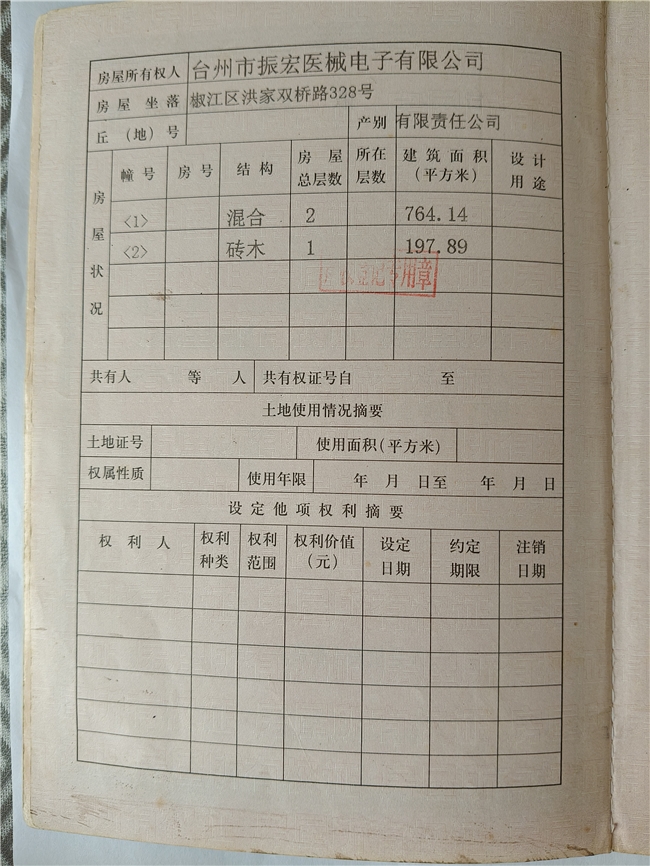 房屋所有权人 台州市振宏医械电子有限公司
房屋坐落 椒江区洪家双桥路328号
丘（地）号 产别 有限责任公司
房屋状况
幢号 房号 结构 房屋总层数 所在层数 建筑面积（平方米） 设计用途
<1> 混合 2 764.14
<2> 砖木 1 197.89
专用章
共有人 等 人 共有权证号自 至
土地使用情况摘要
土地证号 使用面积(平方米)
权属性质 使用年限 年 月 日至 年 月 日
设定他项权利摘要
权利人 权利种类 权利范围 权利价值（元） 设定日期 约定期限 注销日期